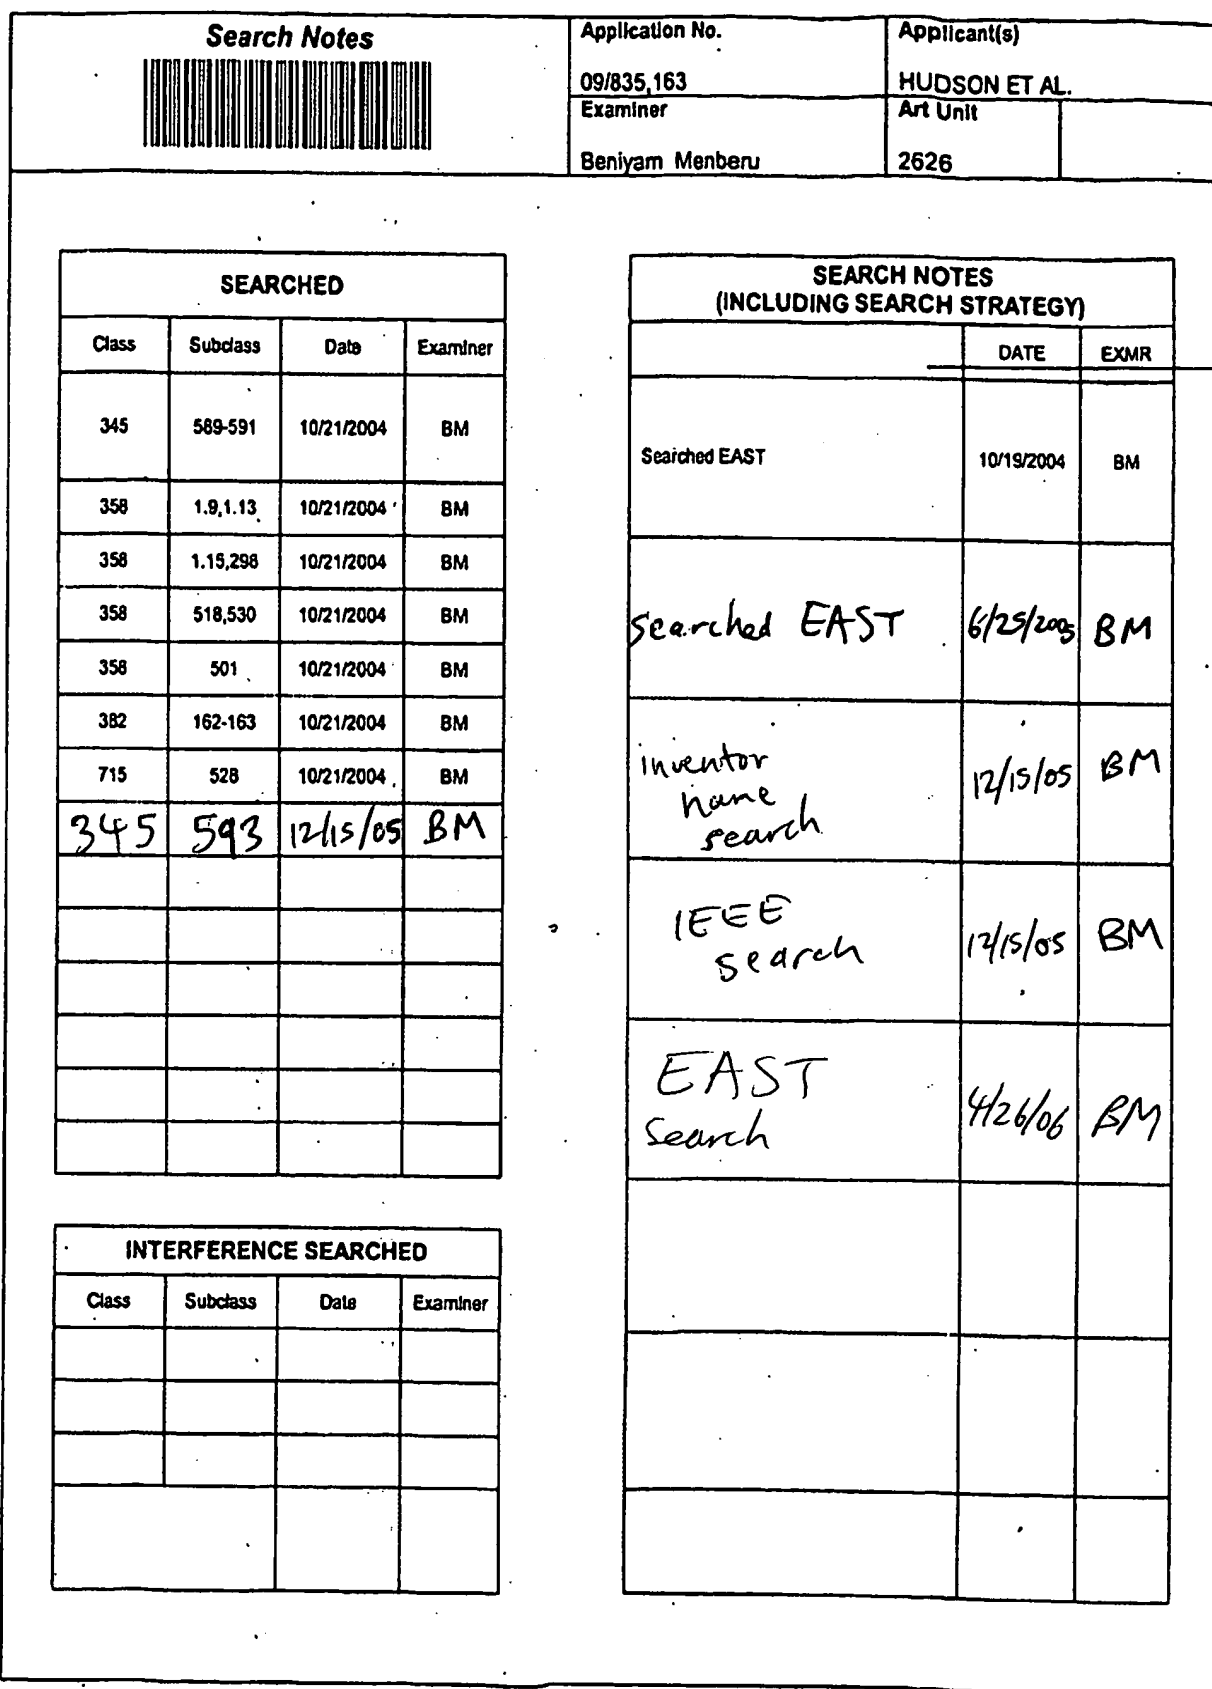 Search Notes
Application No.
09/835,163
Applicant(s)
HUDSON ET AL.
Examiner
Beniyam Menberu
Art Unit
2626
SEARCHED
Class Subclass Date Examiner
345 589-591 10/21/2004 BM
358 1.9,1.13 10/21/2004 BM
358 1.15,298 10/21/2004 BM
358 518,530 10/21/2004 BM
358 501 10/21/2004 BM
382 162-163 10/21/2004 BM
715 528 10/21/2004 BM
345 593 12/15/05 BM
INTERFERENCE SEARCHED
Class Subclass Date Examiner
SEARCH NOTES
(INCLUDING SEARCH STRATEGY)
DATE EXMR
Searched EAST 10/19/2004 BM
searched EAST 6/25/2005 BM
inventor
name
search 12/15/05 BM
IEEE
search 12/15/05 BM
EAST
search 4/26/06 BM